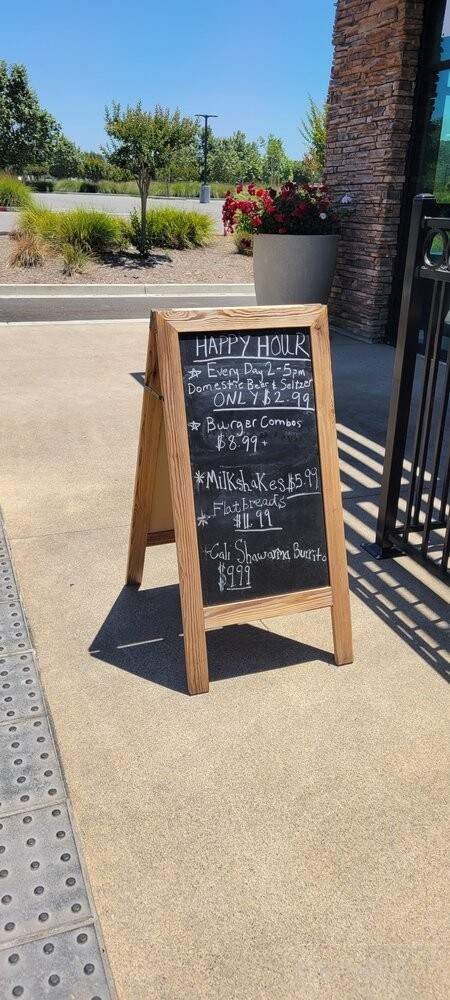 HAPPY HOUR
Every Day 2-5pm
Domestic Beer & Seltzer
ONLY $2.99
Burger Combos
$8.99+
Milkshakes $5.99
Flatbreads
$11.99
Cali Shawarma Burrito
$999